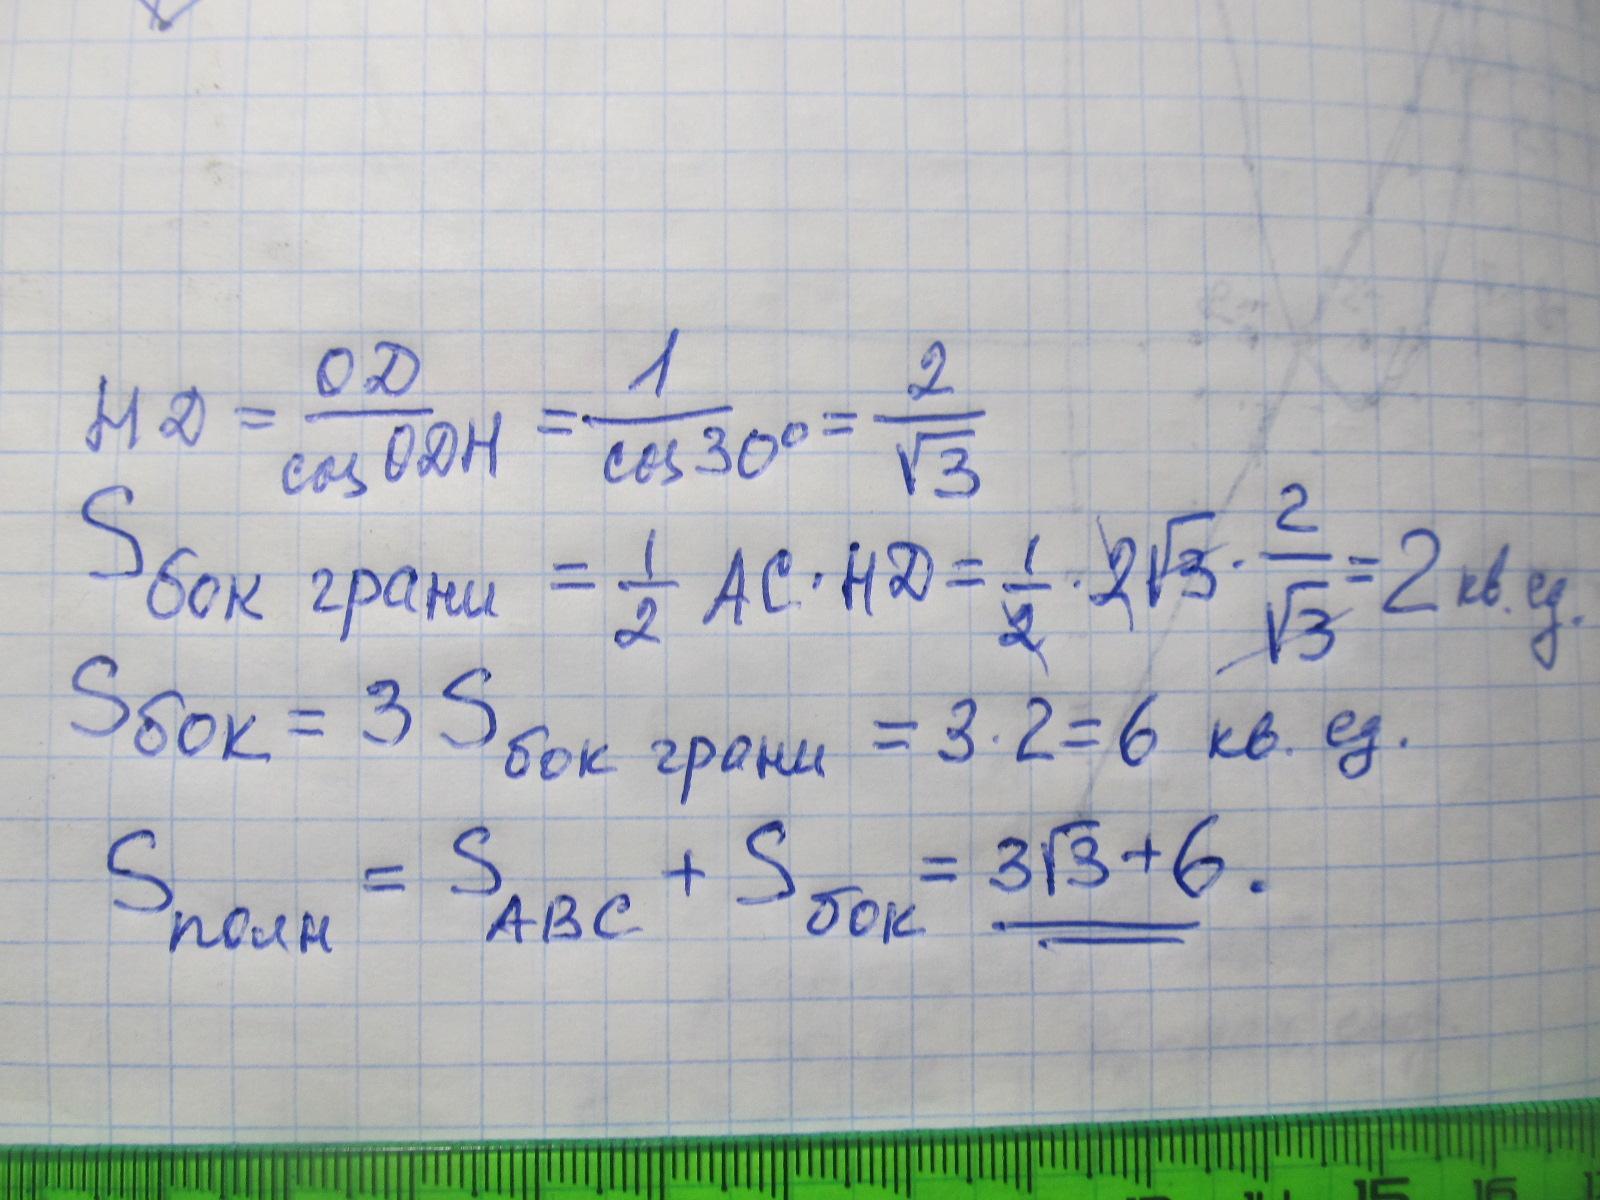 HD = OD / cos ODH = 1 / cos 30° = 2 / √3
S бок грани = 1/2 AC · HD = 1/2 · 2√3 · 2/√3 = 2 кв. ед.
S бок = 3 S бок грани = 3 · 2 = 6 кв. ед.
S полн = S ABC + S бок = 3√3 + 6 .
15 16